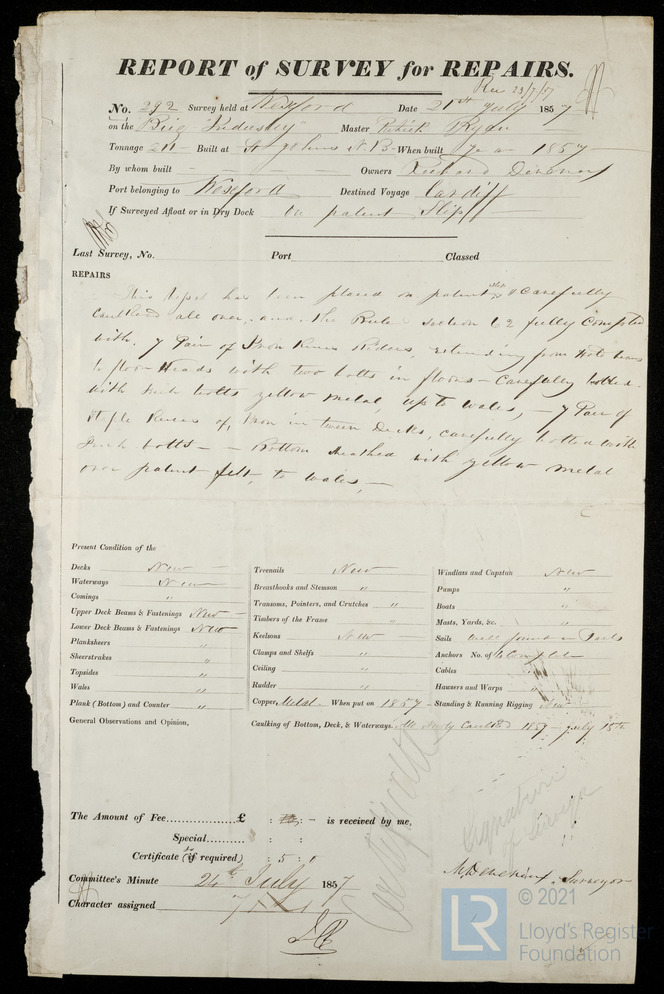 REPORT of SURVEY for REPAIRS.
Rec 23/7/57
No. 292 Survey held at Wexford Date 21st July 1857
on the Brig "Industry" Master Patrick Ryan
Tonnage 211 Built at St Johns N.B. When built year 1857
By whom built Owners Richard
Port belonging to Wexford Destined Voyage Cardiff
If Surveyed Afloat or in Dry Dock On patent Slip
Last Survey, No. Port Classed
REPAIRS
This Vessel has been placed on patent slip & carefully
caulked all over, and the Rules section 62 fully complied
with. 7 Pair of Iron Knee Riders, extending from Hold beams
to floor Heads with two bolts in floors - carefully bolted
with Inch bolts yellow metal, up to wales, - 7 Pair of
Staple Knees of Iron in tween Decks, carefully bolted with
Inch bolts - Bottom sheathed with yellow metal
over patent felt, to wales, -
Present Condition of the
Decks New
Waterways New
Comings "
Upper Deck Beams & Fastenings New
Lower Deck Beams & Fastenings New
Planksheers "
Sheerstrakes "
Topsides "
Wales "
Plank (Bottom) and Counter "
General Observations and Opinion,
Treenails New
Breasthooks and Stemson "
Transoms, Pointers, and Crutches "
Timbers of the Frame "
Keelsons New
Clamps and Shelfs "
Ceiling "
Rudder "
Copper Metal When put on 1857
Caulking of Bottom, Deck, & Waterways. All Newly Caulked 1857 - July 15th
Windlass and Capstan New
Pumps "
Boats "
Masts, Yards, &c. "
Sails well found in Sails
Anchors No. of Complete
Cables
Hawsers and Warps "
Standing & Running Rigging New
The Amount of Fee £ : : - is received by me,
Special : :
Certificate (if required) : 5 :
Certificate
Signature
Surveyor
Committee's Minute 24th July 1857
Character assigned
© 2021
LR
Lloyd's Register
Foundation